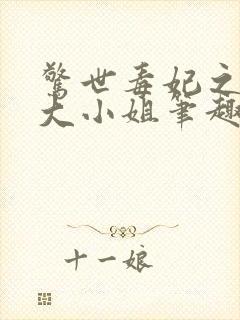 驚世毒妃之
大小姐筆趣
十一娘